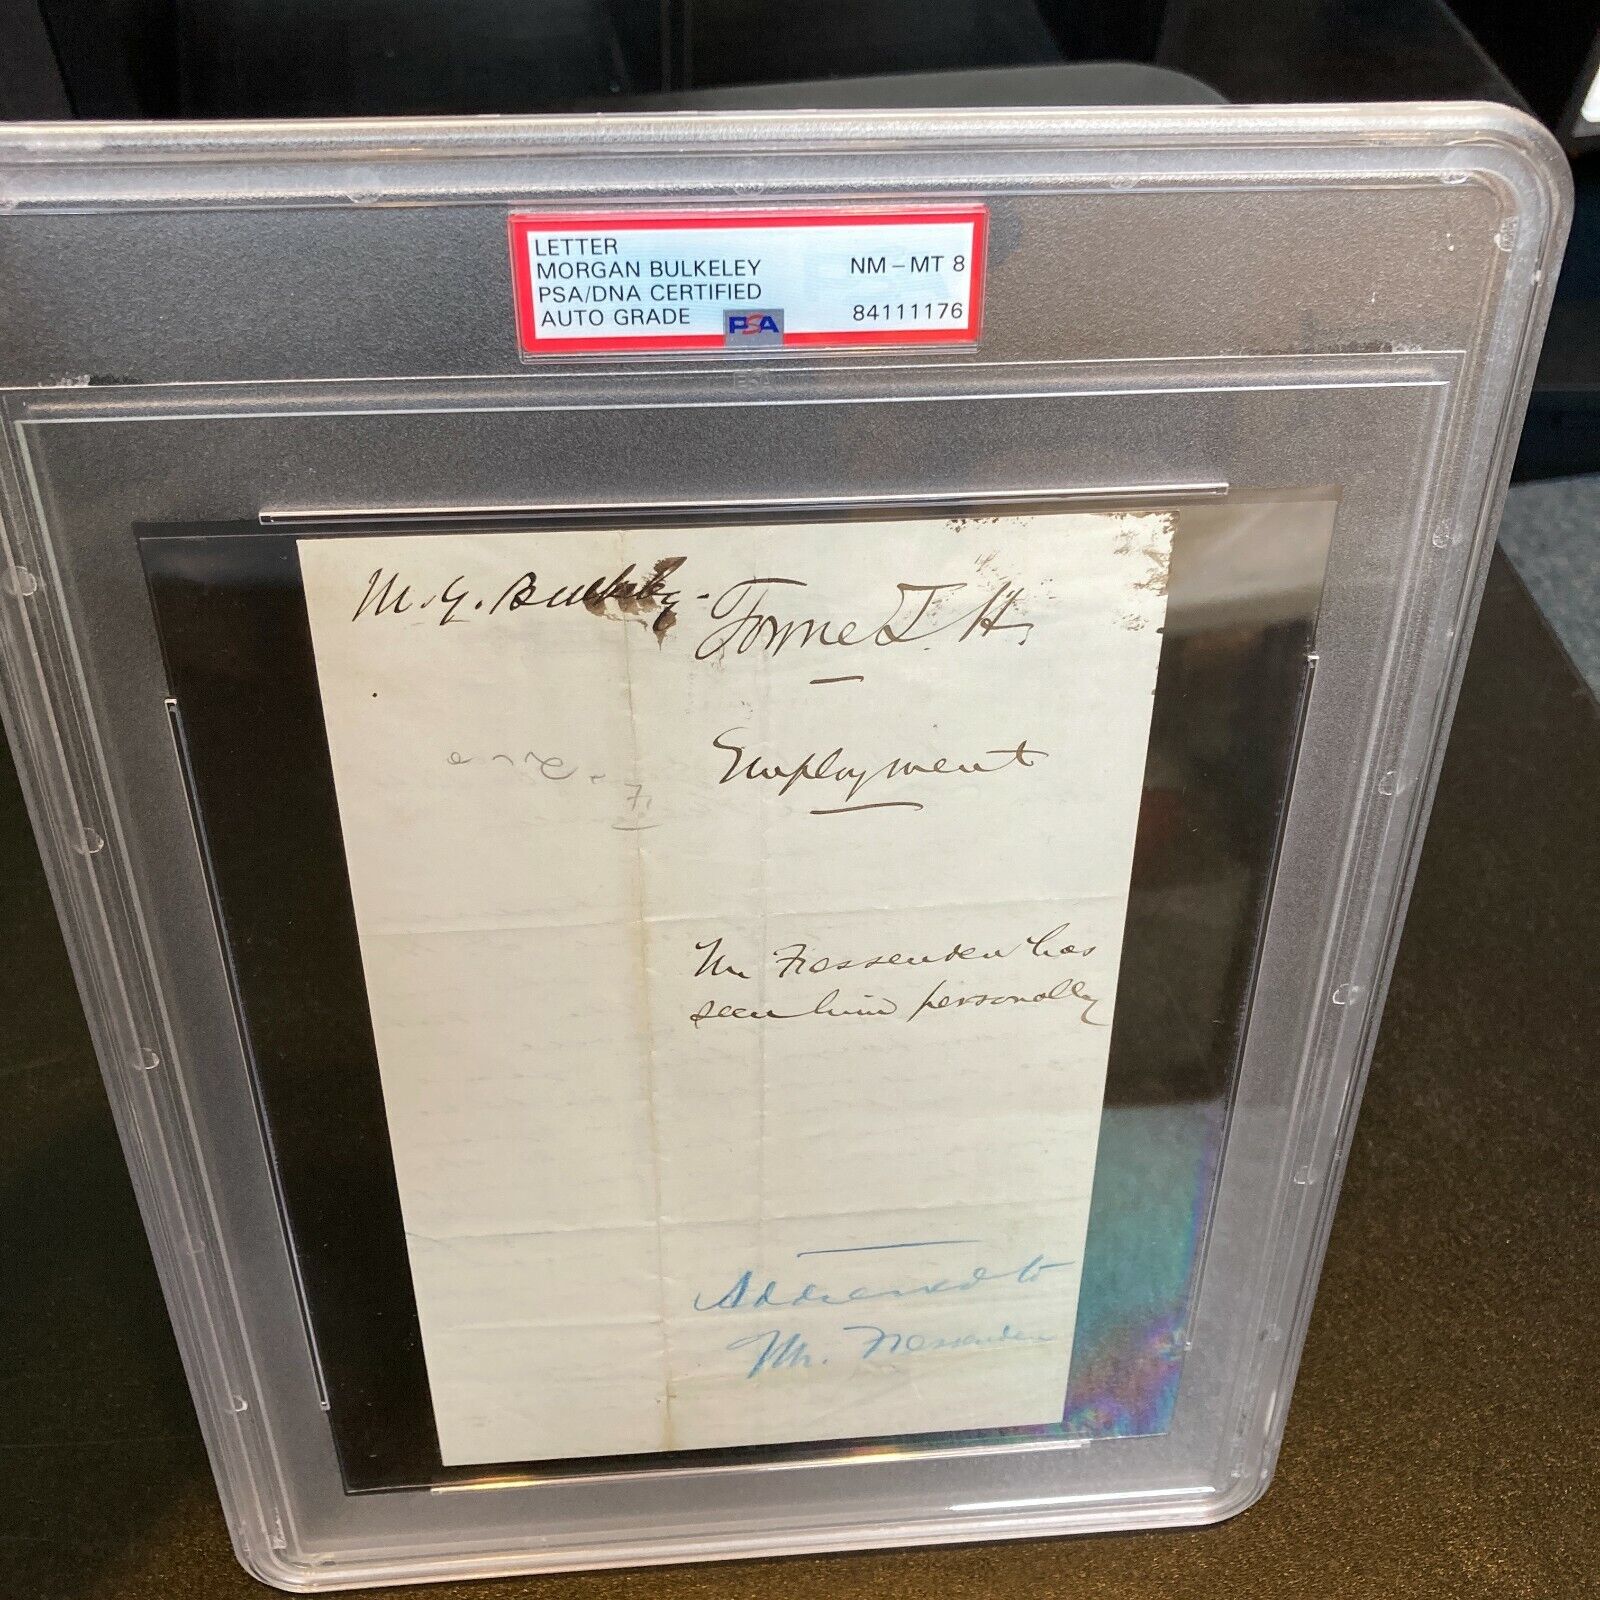 LETTER
MORGAN BULKELEY
PSA/DNA CERTIFIED
AUTO GRADE
PSA
NM-MT 8
84111176
M. G. Bulkeley
Employment
Mr Fressenden has
seen him personally
Addressed to
Mr. Fressenden